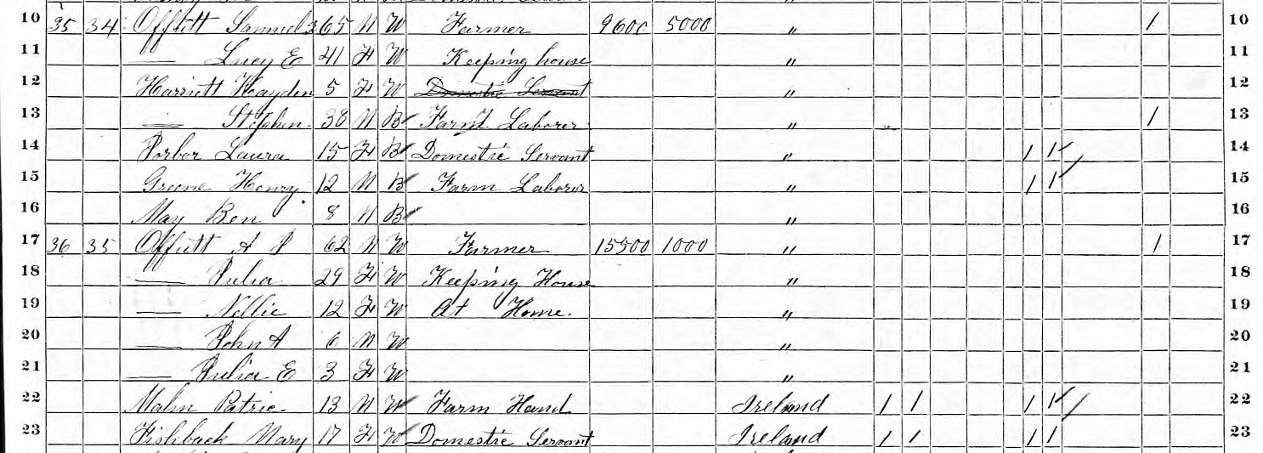 10 35 34 Offutt Samuel 65 M W Farmer 9600 5000 " 1 10
11 — Lucy E 41 F W Keeping house " 11
12 Harriett Hayden 5 F W Domestic Servant " 12
13 — Stephen 38 M B Farm Laborer " 1 13
14 Laura 15 F B Domestic Servant " 1 1 / 14
15 Greene Henry 12 M B Farm Laborer " 1 1 15
16 May Ben 8 M B " 16
17 36 35 Offutt A 62 M W Farmer 15500 1000 " 1 17
18 — Julia 29 F W Keeping House " 18
19 — Nellie 12 F W At Home " 19
20 — John A 6 M W " 20
21 — Julia E 3 F W " 21
22 Patric 13 M W Farm Hand Ireland 1 1 1 1 / 22
23 Fishback Mary 17 F W Domestic Servant Ireland 1 1 1 1 23